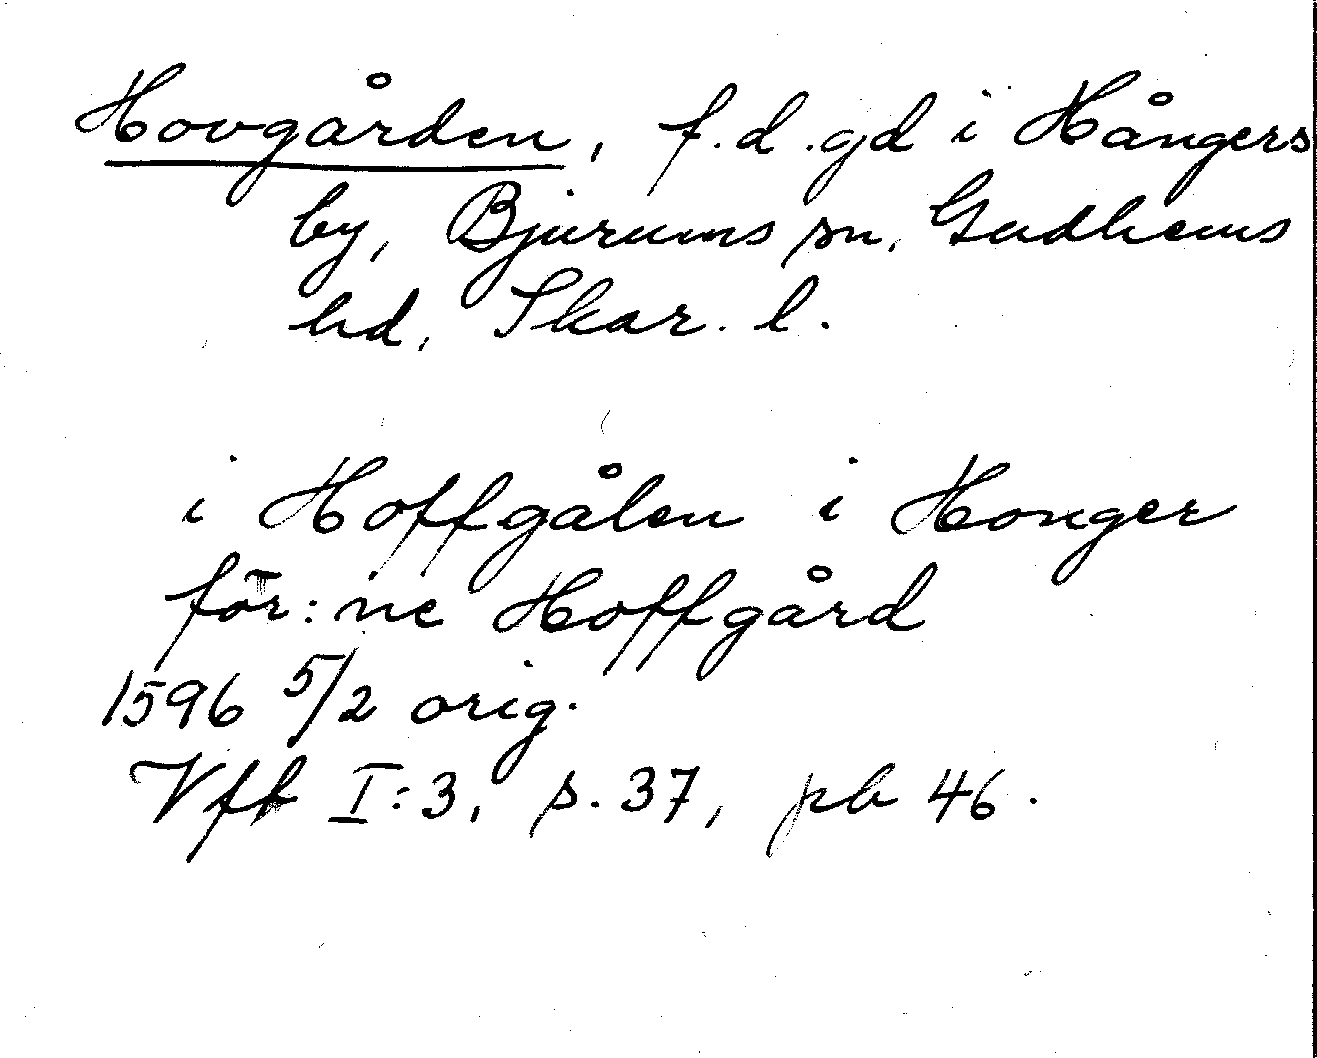 Hovgården, f.d. gd i Hångers
by, Bjurums sn, Gudhems
hd, Skar. l.
i Hoffgålen i Honger
för:ne Hoffgård
1596 5/2 orig.
Vff I:3, s. 37, pb 46.